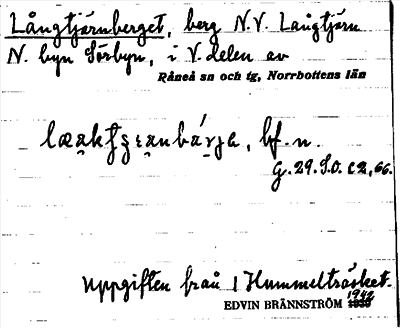 Långtjärnberget, berg N.V. Långtjärn
N. byn Sörbyn, i V. delen av
Råneå sn och tg, Norrbottens län
bf. n.
G. 29. S.O. c 2, 66.
Uppgiften från 1 Hummelträsket.
1942
EDVIN BRÄNNSTRÖM 1939